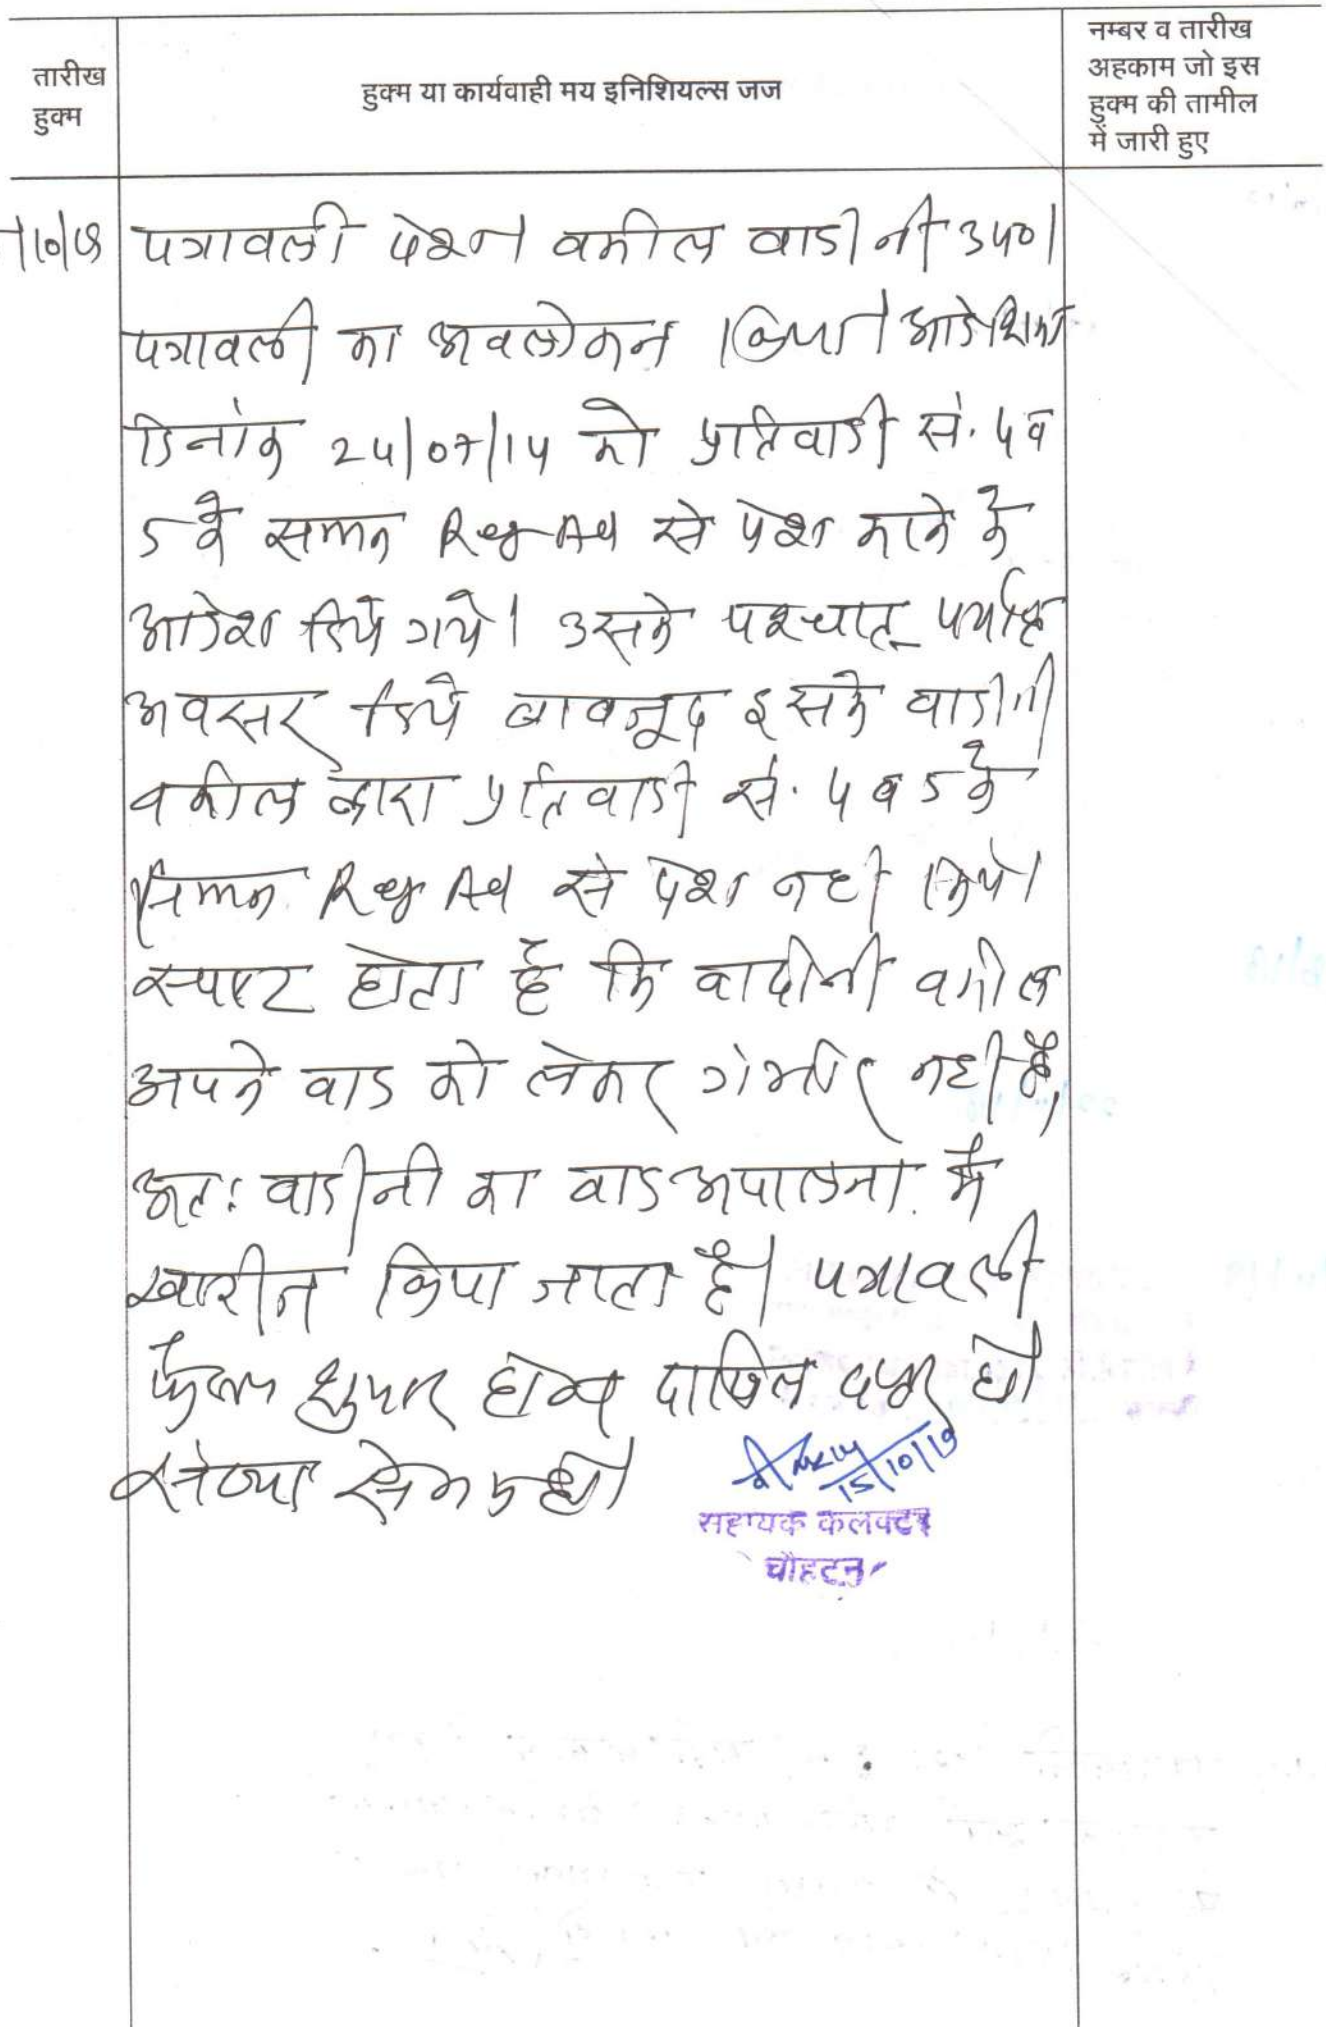 तारीख
हुक्म
हुक्म या कार्यवाही मय इनिशियल्स जज
नम्बर व तारीख
अहकाम जो इस
हुक्म की तामील
में जारी हुए
पत्रावली पेश। वकील वादीनी उप०।
पत्रावली का अवलोकन किया। आदेशिका
दिनांक 24/07/14 को प्रतिवादी सं. 4 व
5 के सम्मन Reg Ad से पेश करने के
आदेश दिये गये। उसके पश्चात् पर्याप्त
अवसर दिये बावजूद इसके वादीनी
वकील द्वारा प्रतिवादी सं. 4 व 5 के
सम्मन Reg Ad से पेश नही किये।
स्पष्ट होता है कि वादीनी वकील
अपने वाद को लेकर गंभीर नही है,
अत: वादीनी का वाद अपालना में
खारीज किया जाता है। पत्रावली
फैसल शुमार होकर दाखिल दफ्तर हो
15/10/19
सहायक कलक्टर
चौहटन